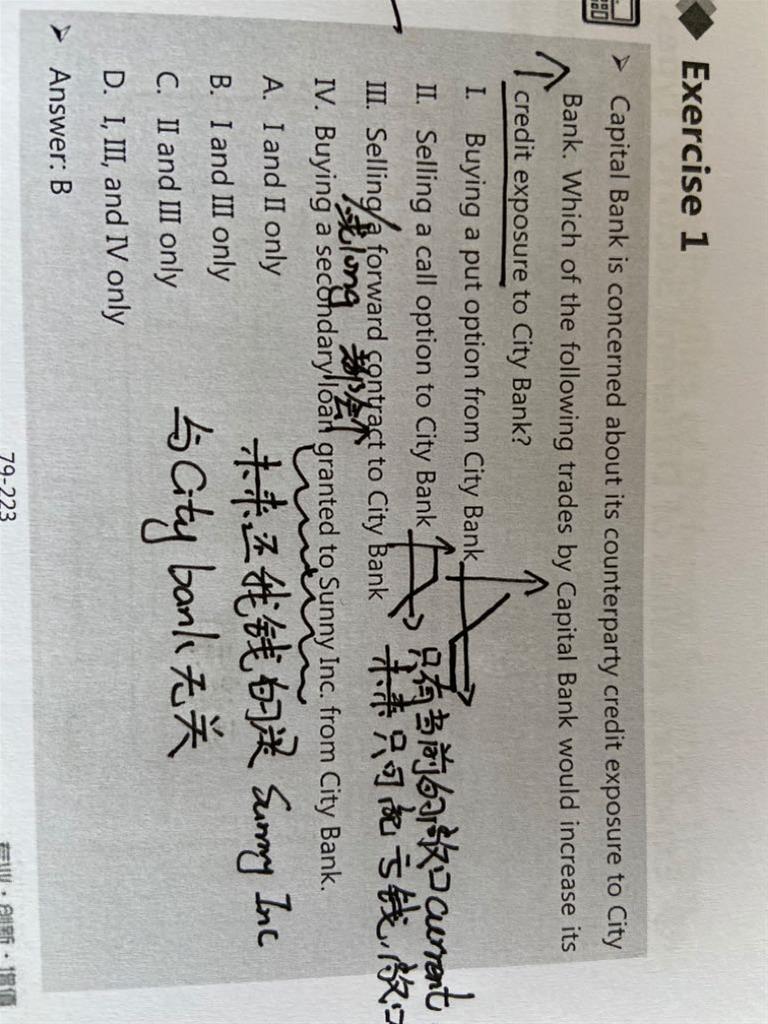 Exercise 1
➢ Capital Bank is concerned about its counterparty credit exposure to City
Bank. Which of the following trades by Capital Bank would increase its
↑ credit exposure to City Bank?
I. Buying a put option from City Bank
II. Selling a call option to City Bank
只有当前的敞口current
未来只可能亏钱,敞口
III. Selling a forward contract to City Bank
或long 都会↑
IV. Buying a secondary loan granted to Sunny Inc. from City Bank.
未来还我钱的是 Sunny Inc
与City bank无关
A. I and II only
B. I and III only
C. II and III only
D. I, III, and IV only
➢ Answer: B
79-223